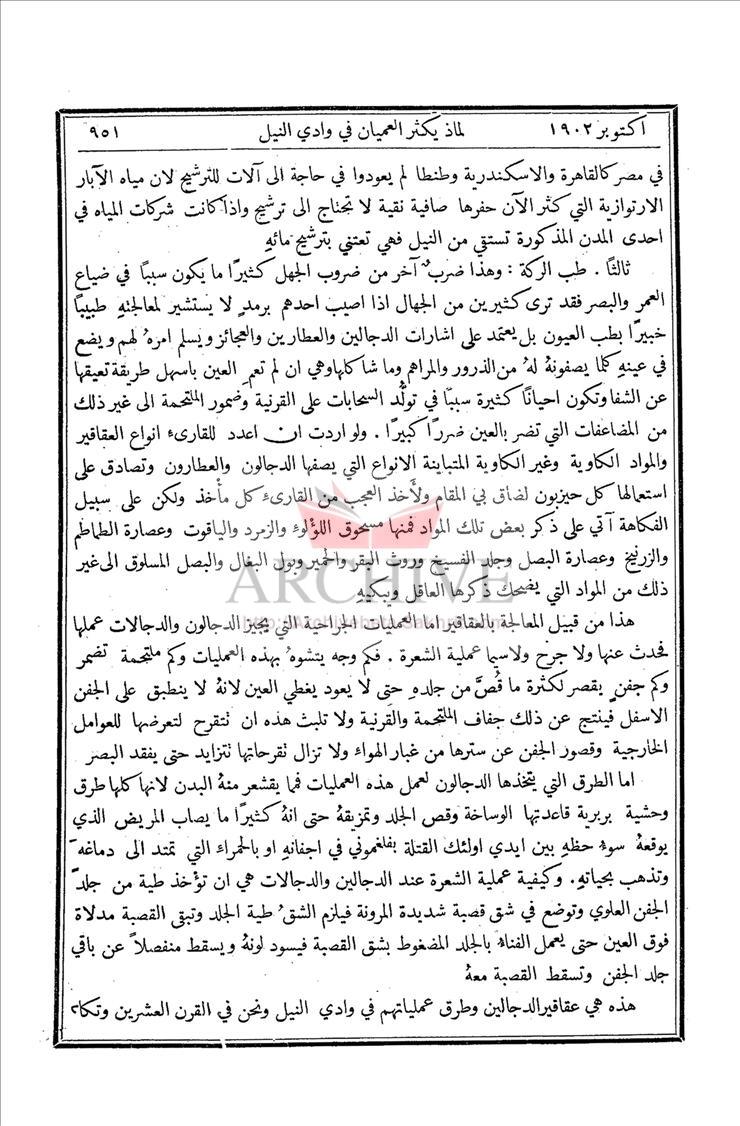 اكتوبر ١٩٠٢ لماذ يكثر العميان في وادي النيل ٩٥١
في مصر كالقاهرة والاسكندرية وطنطا لم يعودوا في حاجة الى آلات للترشيح لان مياه الآبار
الارتوازية التي كثر الآن حفرها صافية نقية لا تحتاج الى ترشيح واذا كانت شركات المياه في
احدى المدن المذكورة تستقي من النيل فهي تعتني بترشيح مائهِ
ثالثًا . طب الركة : وهذا ضربٌ آخر من ضروب الجهل كثيرًا ما يكون سببًا في ضياع
العمر والبصر فقد ترى كثيرين من الجهال اذا اصيب احدهم برمدٍ لا يستشير لمعالجتهِ طبيبًا
خبيرًا بطب العيون بل يعتمد على اشارات الدجالين والعطارين والعجائز ويسلم امرهُ لهم ويضع
في عينهِ كلما يصفونهُ لهُ من الذرور والمراهم وما شاكلها وهي ان لم تعمِ العين باسهل طريقة تعيقها
عن الشفا وتكون احيانًا كثيرة سببًا في تولُّد السحابات على القرنية وضمور الملتحمة الى غير ذلك
من المضاعفات التي تضر بالعين ضررًا كبيرًا . ولو اردت ان اعدد للقارىء انواع العقاقير
والمواد الكاوية وغير الكاوية المتباينة الانواع التي يصفها الدجالون والعطارون وتصادق على
استعمالها كل حيزبون لضاق بي المقام ولأخذ العجب من القارىء كل مأخذ ولكن على سبيل
الفكاهة آتي على ذكر بعض تلك المواد فمنها مسحوق اللؤلوء والزمرد والياقوت وعصارة الطماطم
والزرنيخ وعصارة البصل وجلد الفسيخ وروث البقر والحمير وبول البغال والبصل المسلوق الى غير
ذلك من المواد التي يضحك ذكرها العاقل ويبكيهِ
ARCHIVE
هذا من قبيل المعالجة بالعقاقير اما العمليات الجراحية التي يجيز الدجالون والدجالات عملها
فحدث عنها ولا جرح ولاسيما عملية الشعرة . فكم وجه يتشوهُ بهذه العمليات وكم ملتحمة تضمر
وكم جفنٍ يقصر لكثرة ما قُصَّ من جلدهِ حتى لا يعود يغطي العين لانهُ لا ينطبق على الجفن
الاسفل فينتج عن ذلك جفاف الملتحمة والقرنية ولا تلبث هذه ان تتقرح لتعرضها للعوامل
الخارجية وقصور الجفن عن سترها من غبار الهواء ولا تزال تقرحاتها تتزايد حتى يفقد البصر
اما الطرق التي يتخذها الدجالون لعمل هذه العمليات فما يقشعر منهُ البدن لانها كلها طرق
وحشية بربرية قاعدتها الوساخة وقص الجلد وتمزيقهُ حتى انهُ كثيرًا ما يصاب المريض الذي
يوقعهُ سوء حظهِ بين ايدي اولئك القتلة بفلغموني في اجفانهِ او بالحمراء التي تمتد الى دماغهِ
وتذهب بحياتهِ. وكيفية عملية الشعرة عند الدجالين والدجالات هي ان تؤخذ طية من جلد
الجفن العلوي وتوضع في شق قصبة شديدة المرونة فيلزم الشق طية الجلد وتبقى القصبة مدلاة
فوق العين حتى يعمل الفناء بالجلد المضغوط بشق القصبة فيسود لونهُ ويسقط منفصلاً عن باقي
جلد الجفن وتسقط القصبة معهُ
هذه هي عقاقير الدجالين وطرق عملياتهم في وادي النيل ونحن في القرن العشرين وتكاد